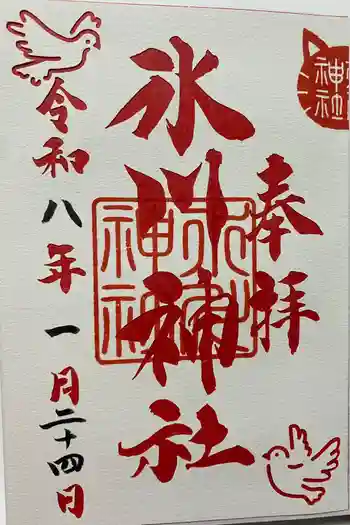 奉拝
氷川神社
令和八年一月二十四日
氷川神社
神社